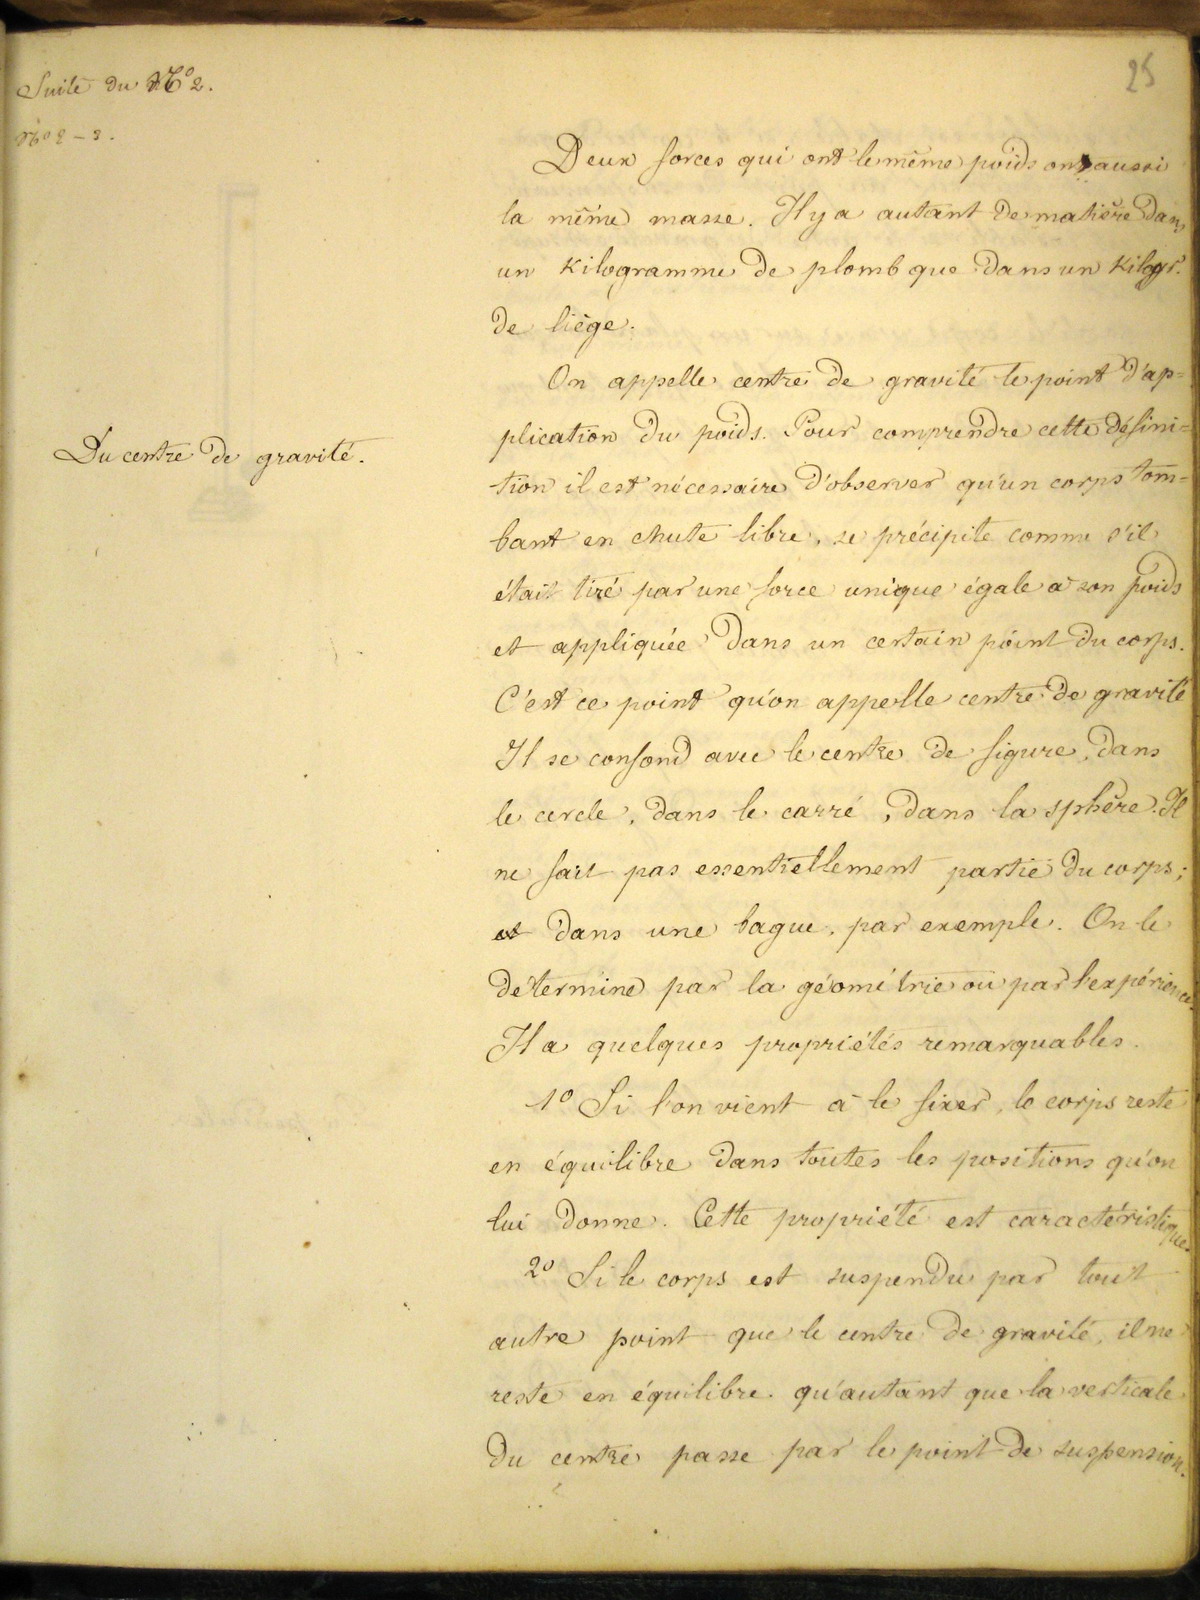 25
Suite du N° 2.
N° 2 - 3.
Deux forces qui ont le même poids ont aussi
la même masse. Il y a autant de matière dans
un kilogramme de plomb que dans un kilogr.
de liège.
On appelle centre de gravité le point d'ap=
Du centre de gravité.
plication du poids. Pour comprendre cette défini=
tion il est nécessaire d'observer qu'un corps tom=
bant en chute libre, se précipite comme s'il
était tiré par une force unique égale à son poids
et appliquée dans un certain point du corps.
C'est ce point qu'on appelle centre de gravité
Il se confond avec le centre de figure, dans
le cercle, dans le carré, dans la sphère. Il
ne fait pas essentiellement partie du corps;
dans une bague, par exemple. On le
determine par la géométrie ou par l'expérience.
Il a quelques propriétés remarquables.
1° Si l'on vient à le fixer, le corps reste
en équilibre dans toutes les positions qu'on
lui donne. Cette propriété est caractéristique
2° Si le corps est suspendu par tout
autre point que le centre de gravité, il ne
reste en équilibre qu'autant que la verticale
du centre passe par le point de suspension.